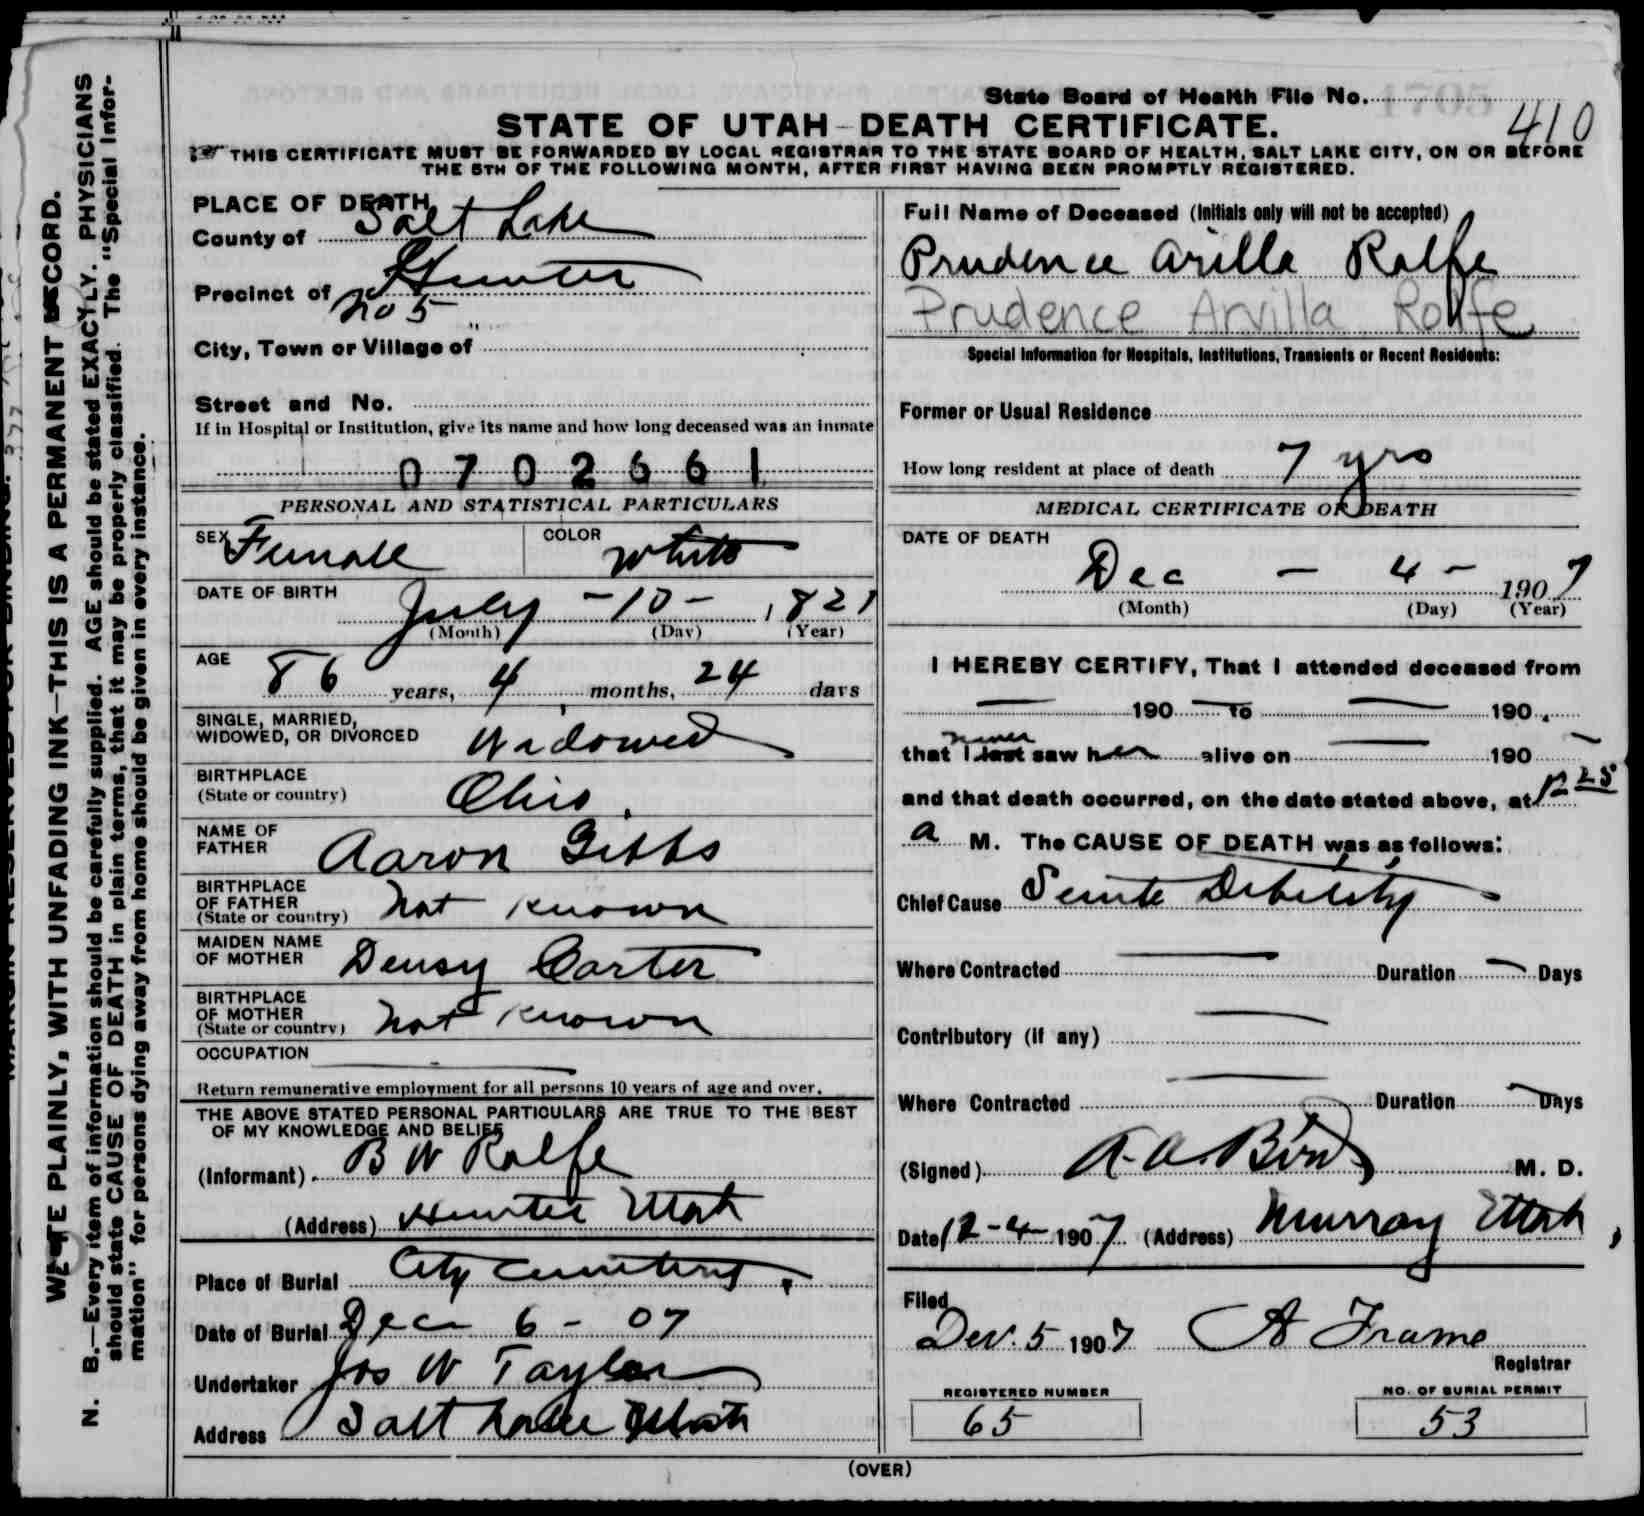 State Board of Health File No.
410
STATE OF UTAH-DEATH CERTIFICATE.
THIS CERTIFICATE MUST BE FORWARDED BY LOCAL REGISTRAR TO THE STATE BOARD OF HEALTH, SALT LAKE CITY, ON OR BEFORE
THE 5TH OF THE FOLLOWING MONTH, AFTER FIRST HAVING BEEN PROMPTLY REGISTERED.
PLACE OF DEATH
County of Salt Lake
Precinct of Hunter
No 5
City, Town or Village of
Street and No.
If in Hospital or Institution, give its name and how long deceased was an inmate
0702661
PERSONAL AND STATISTICAL PARTICULARS
SEX Female COLOR White
DATE OF BIRTH July - 10 - 1821
(Month) (Day) (Year)
AGE 86 years, 4 months, 24 days
SINGLE, MARRIED,
WIDOWED, OR DIVORCED Widowed
BIRTHPLACE
(State or country) Ohio
NAME OF
FATHER Aaron Gibbs
BIRTHPLACE
OF FATHER
(State or country) Not Known
MAIDEN NAME
OF MOTHER Densy Carter
BIRTHPLACE
OF MOTHER
(State or country) Not Known
OCCUPATION
Return remunerative employment for all persons 10 years of age and over.
THE ABOVE STATED PERSONAL PARTICULARS ARE TRUE TO THE BEST
OF MY KNOWLEDGE AND BELIEF
(Informant) B W Rolfe
(Address) Hunter Utah
Place of Burial City Cemetery
Date of Burial Dec 6 - 07
Undertaker Jos W Taylor
Address Salt Lake Utah
Full Name of Deceased (Initials only will not be accepted)
Prudence Arilla Rolfe
Prudence Arvilla Rolfe
Special Information for Hospitals, Institutions, Transients or Recent Residents:
Former or Usual Residence
How long resident at place of death 7 yrs
MEDICAL CERTIFICATE OF DEATH
DATE OF DEATH
Dec - 4 - 1907
(Month) (Day) (Year)
I HEREBY CERTIFY, That I attended deceased from
— 190 — To — 190
never
that I last saw her alive on — 190 —
and that death occurred, on the date stated above, at 12 25
a M. The CAUSE OF DEATH was as follows:
Chief Cause Senile Debility
Where Contracted — Duration — Days
Contributory (if any) —
Where Contracted — Duration — Days
(Signed) A. A. Bird M. D.
Date 12-4- 1907 (Address) Murray Utah
Filed
Dec. 5 1907 A Frame
Registrar
REGISTERED NUMBER NO. OF BURIAL PERMIT
65 53
(OVER)
WRITE PLAINLY, WITH UNFADING INK—THIS IS A PERMANENT RECORD.
N. B.—Every item of information should be carefully supplied. AGE should be stated EXACTLY. PHYSICIANS
should state CAUSE OF DEATH in plain terms, that it may be properly classified. The "Special Infor-
mation" for persons dying away from home should be given in every instance.